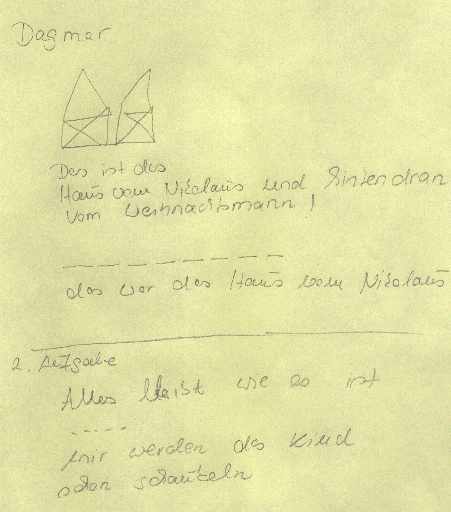 Dagmar
Das ist das
Haus vom Nikolaus und hintendran
vom Weihnachtsmann!
das war das Haus vom Nikolaus
2. Aufgabe
Alles bleibt wie es ist
wir werden das Kind
schon schaukeln